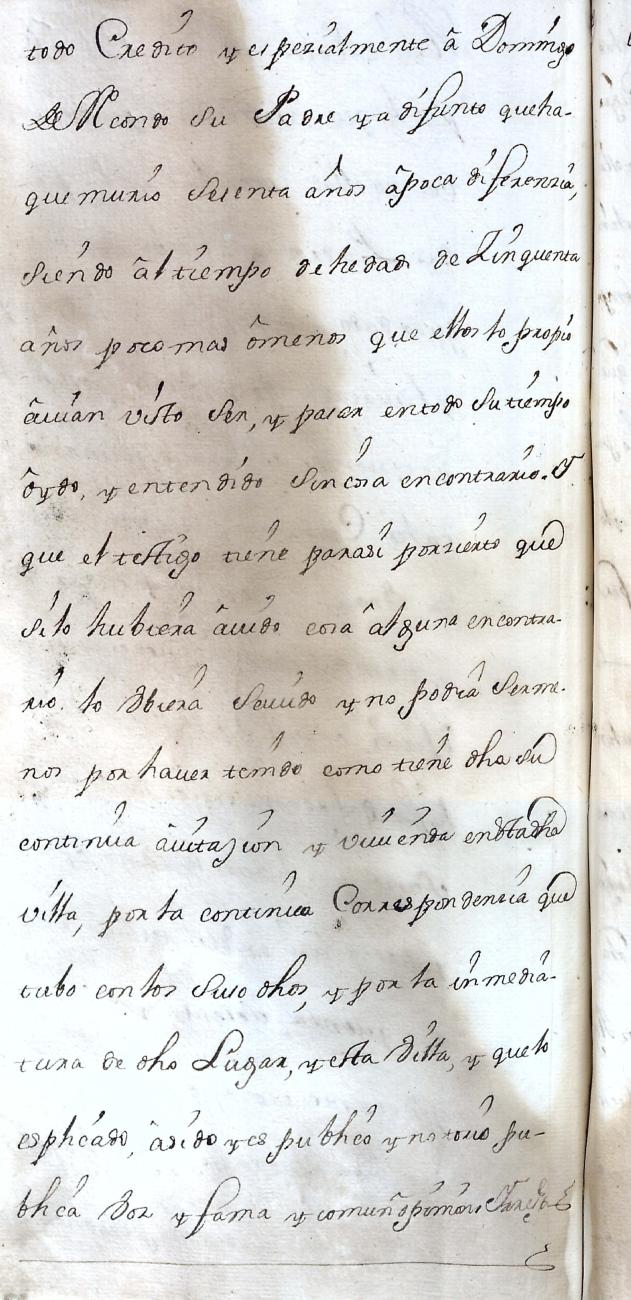 todo Credito y espezialmente â Domingo
de Mcondo su Padre ya difunto que ha-
que murio sesenta años â poca diferenzia,
siendo âl tiempo de hedad de Zinquenta
años poco mas ômenos que ellos lo propio
âuian visto ser, y pasar en todo su tiempo
ôydo, y entendido sin cosa en contrario. Y
que el testigo tiene para si por zierto que
si lo hubiera âuido cosa âlguna en contra-
rio. lo vbiera seuido y no podia ser me-
nos por hauer tenido como tiene dha su
continua âuitazion y viuienda en esta dha
villa, por la continua Correspondenzia que
tubo con los suso dhos, y por la inmedia-
tura de dho Lugar, y esta Villa, y que lo
esplicado, âsido y es publico y notorio pu-
blica Voz y fama y comun ôpinion,